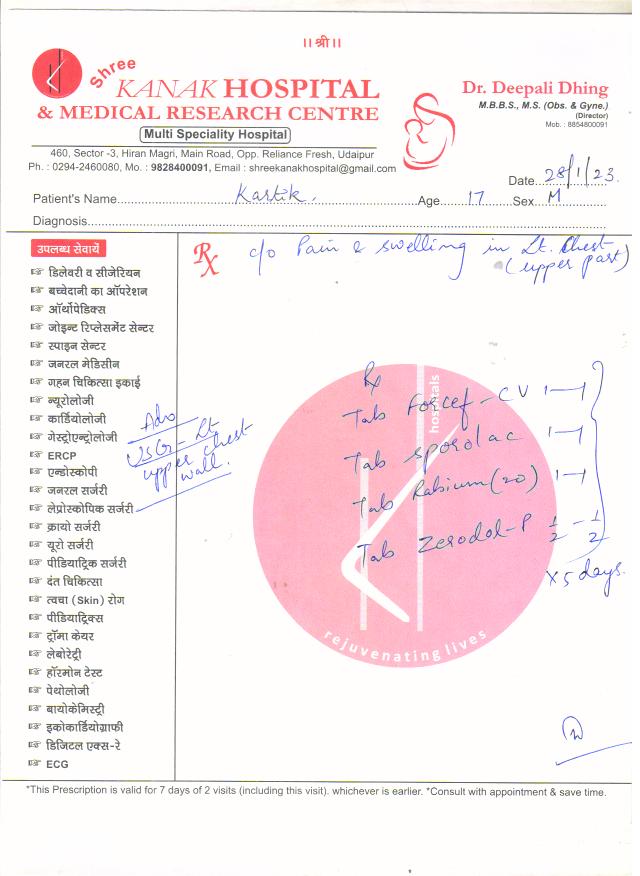 ।। श्री ।।
Shree
KANAK HOSPITAL
& MEDICAL RESEARCH CENTRE
Multi Speciality Hospital
460, Sector -3, Hiran Magri, Main Road, Opp. Reliance Fresh, Udaipur
Ph. : 0294-2460080, Mo. : 9828400091, Email : shreekanakhospital@gmail.com
Dr. Deepali Dhing
M.B.B.S., M.S. (Obs. & Gyne.)
(Director)
Mob. : 8854800091
Date 28/1/23
Patient's Name Kartik. Age 17 Sex M
Diagnosis
उपलब्ध सेवायें
☞ डिलेवरी व सीजेरियन
☞ बच्चेदानी का ऑपरेशन
☞ ऑर्थोपेडिक्स
☞ जोइन्ट रिप्लेसमेंट सेन्टर
☞ स्पाइन सेन्टर
☞ जनरल मेडिसीन
☞ गहन चिकित्सा इकाई
☞ न्यूरोलोजी
☞ कार्डियोलोजी
☞ गेस्ट्रोएन्ट्रोलोजी
☞ ERCP
☞ एन्डोस्कोपी
☞ जनरल सर्जरी
☞ लेप्रोस्कोपिक सर्जरी
☞ क्रायो सर्जरी
☞ यूरो सर्जरी
☞ पीडियाट्रिक सर्जरी
☞ दंत चिकित्सा
☞ त्वचा (Skin) रोग
☞ पीडियाट्रिक्स
☞ ट्रॉमा केयर
☞ लेबोरेट्री
☞ हॉरमोन टेस्ट
☞ पेथोलोजी
☞ बायोकेमिस्ट्री
☞ इकोकार्डियोग्राफी
☞ डिजिटल एक्स-रे
☞ ECG
Rx c/o Pain & swelling in Lt. Chest
(upper part)
Adv
USG - Lt
upper chest
wall.
Rx
Tab Forcef - CV 1—1
Tab Sporolac 1—1
Tab Rabium (20) 1—1
Tab Zerodol-P ½ - ½
x 5 days.
hospitals
rejuvenating lives
*This Prescription is valid for 7 days of 2 visits (including this visit). whichever is earlier. *Consult with appointment & save time.